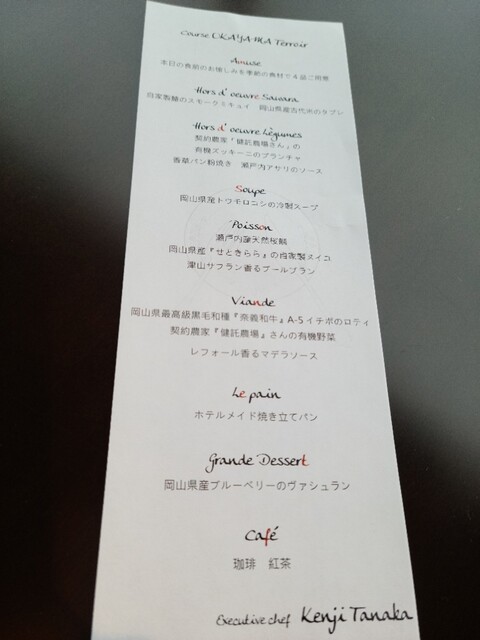 Course OKAYAMA Terroir
Amuse
本日の食前のお愉しみを季節の食材で4品ご用意
Hors d'oeuvre Sawara
自家製鰆のスモークミキュイ 岡山県産古代米のタブレ
Hors d'oeuvre Légumes
契約農家「健託農場さん」の
有機ズッキーニのプランチャ
香草パン粉焼き 瀬戸内アサリのソース
Soupe
岡山県産トウモロコシの冷製スープ
Poisson
瀬戸内産天然桜鯛
岡山県産『せときらら』の自家製ヌイユ
津山サフラン香るブールブラン
Viande
岡山県最高級黒毛和種『奈義和牛』A-5イチボのロティ
契約農家『健託農場』さんの有機野菜
レフォール香るマデラソース
Le pain
ホテルメイド焼き立てパン
Grande Dessert
岡山県産ブルーベリーのヴァシュラン
Café
珈琲 紅茶
Executive chef Kenji Tanaka